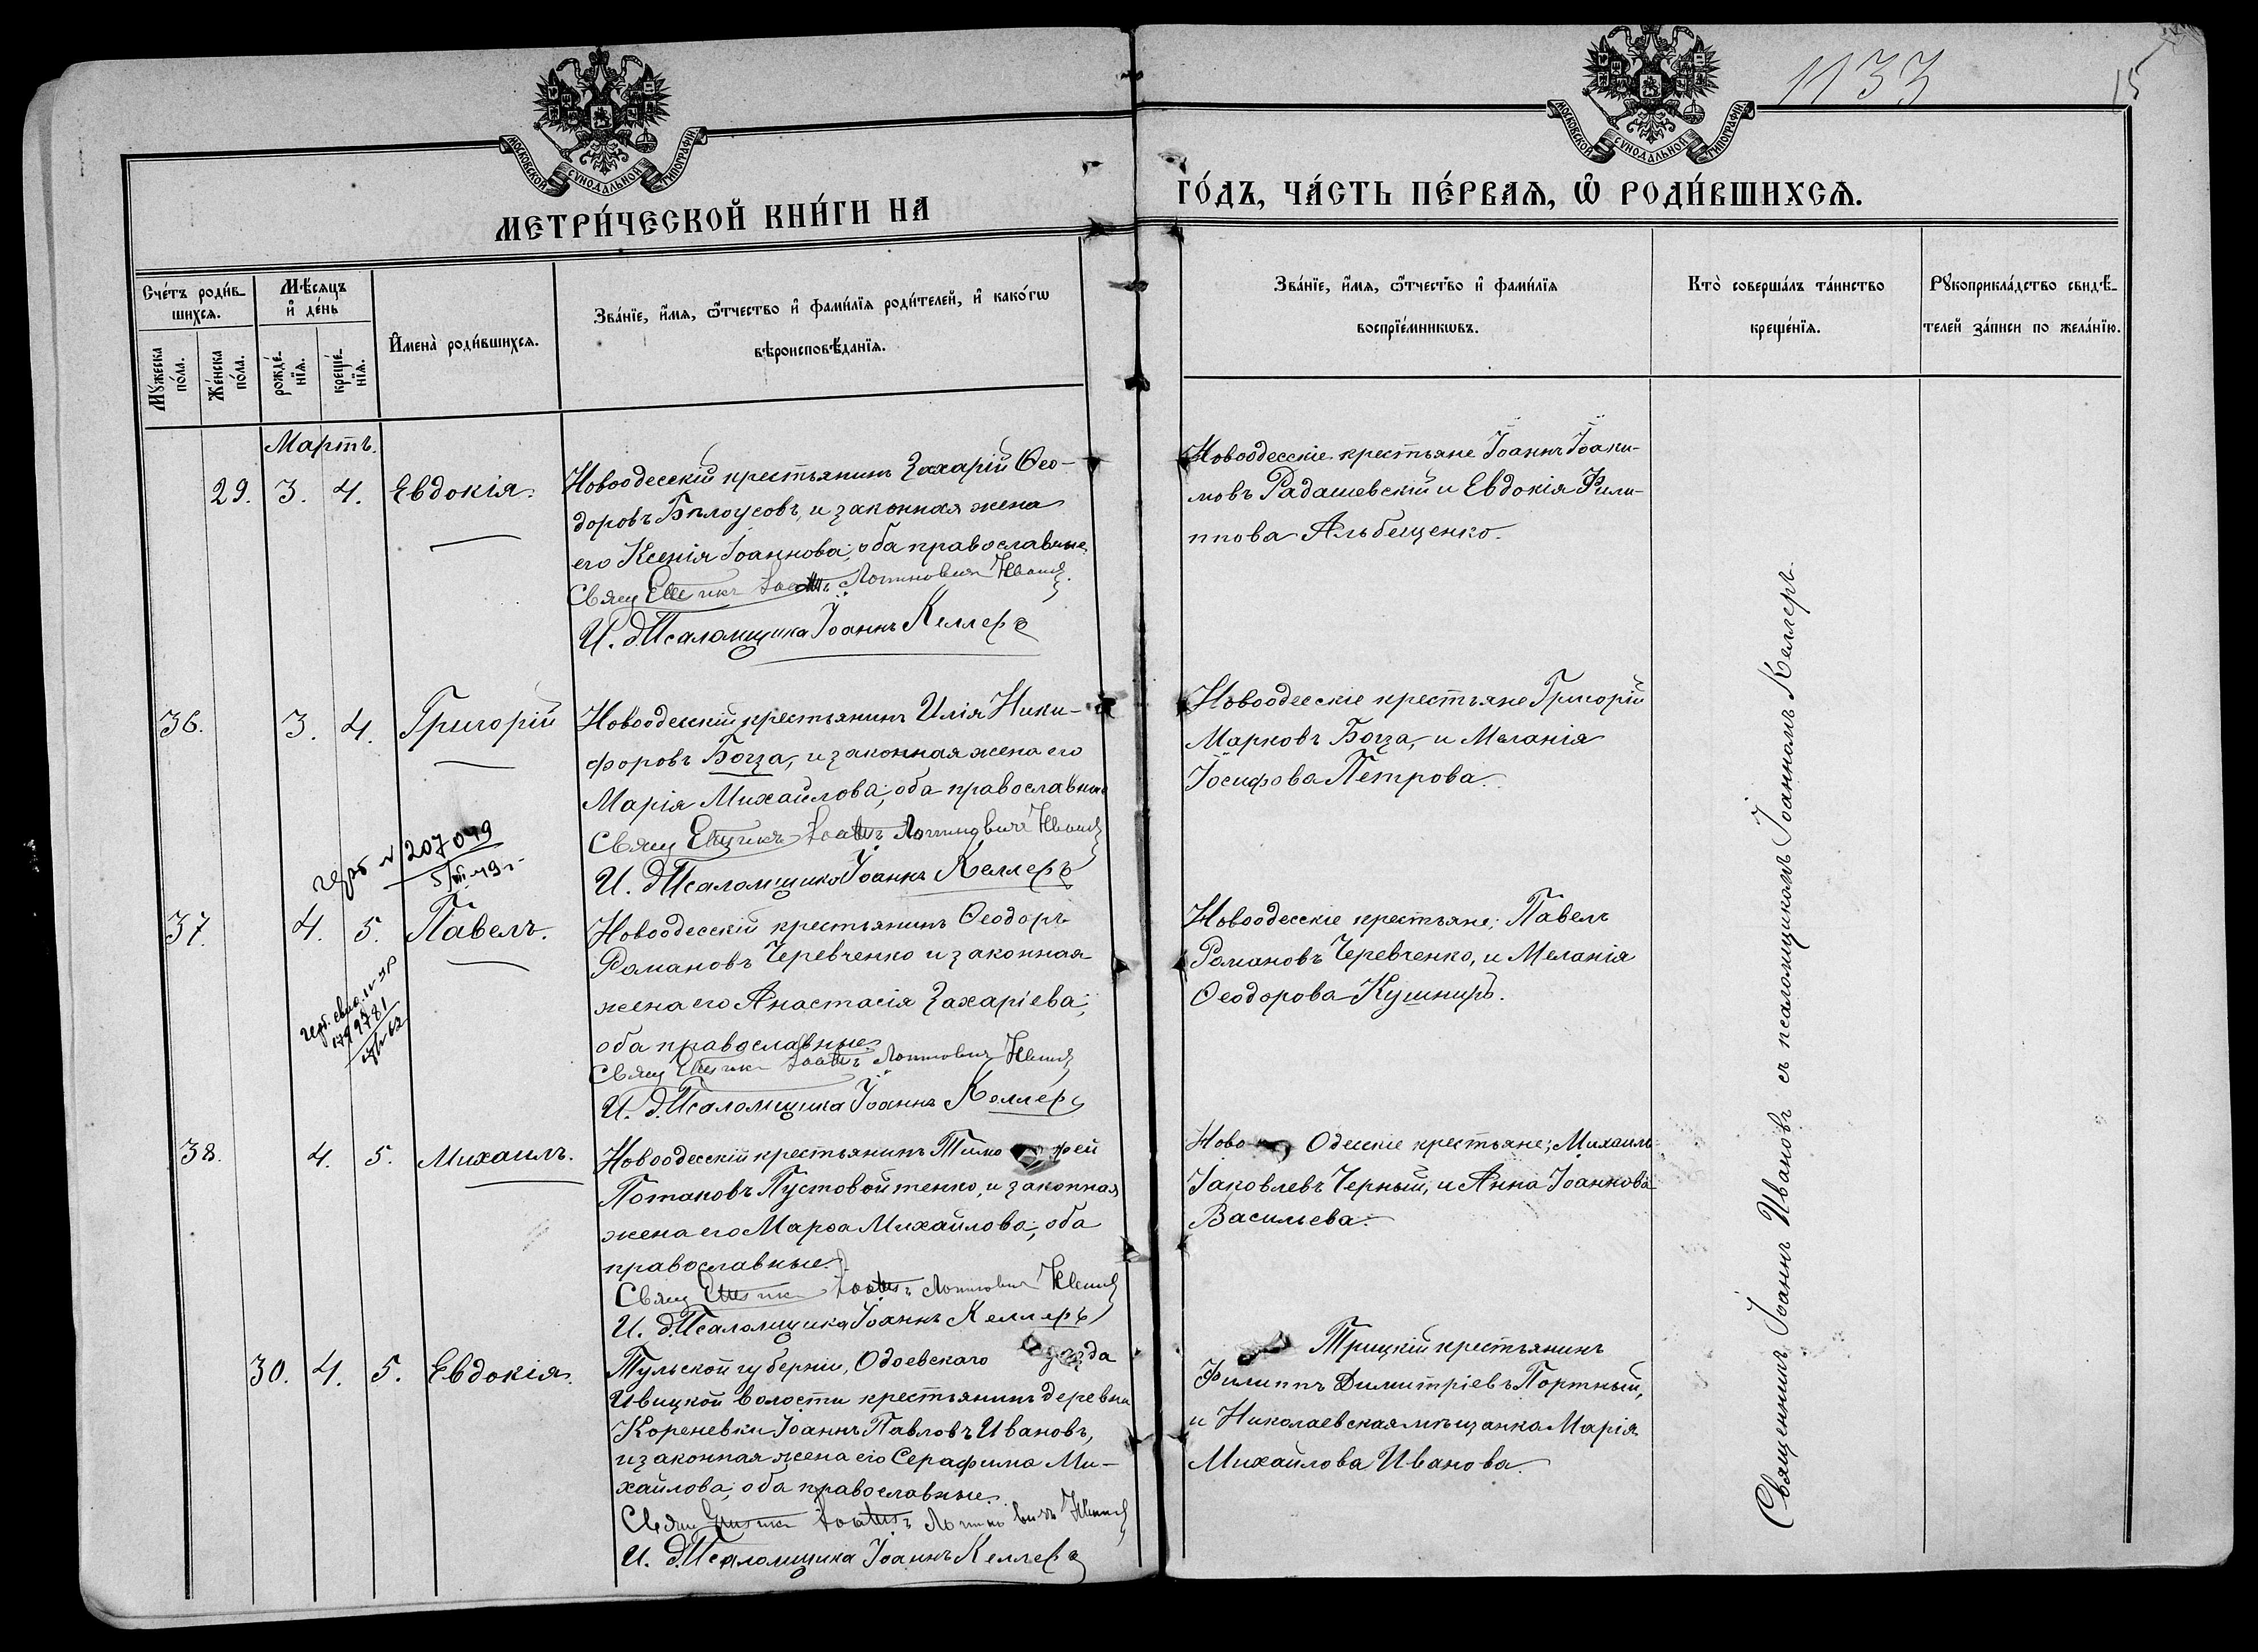 1133
15
МОСКОВСКОЙ СѴНОДАЛЬНОЙ ТИПОГРАФІИ
МОСКОВСКОЙ СѴНОДАЛЬНОЙ ТИПОГРАФІИ
МЕТРИ́ЧЕСКОЙ КНИ́ГИ НА
ГО́ДЪ, ЧА́СТЬ ПЕ́РВАѦ, Ѽ РОДИ́ВШИХСѦ.
Сче́тъ роди́в-
шихсѧ.
Мѣ́сяцъ
и҆ де́нь
Мꙋжеска по́ла.
Же́нска по́ла.
рожде́-
нїѧ.
креще́-
нїѧ.
И҆мена̀ роди́вшихсѧ.
Зва́нїе, и҆́мѧ, ѻ҆́тчество и҆ фами́лїѧ роди́телей, и҆ како́гѡ
вѣроисповѣ́данїѧ.
Зва́нїе, и҆́мѧ, ѻ҆́тчество и҆ фами́лїѧ
воспрїе́мникѡвъ.
Кто̀ соверша́лъ та́инство
креще́нїѧ.
Рꙋкоприкла́дство свидѣ́-
телей за́писи по жела́нїю.
Мартъ.
29. 3. 4. Евдокія.
Новоодесскій крестьянинъ Захарій Ѳео-
доровъ Бѣлоусовъ, и законная жена
его Ксенія Іоаннова; оба православные
Свящ
И. д. Псаломщика Іоаннъ Келлеръ
Новоодесскіе крестьяне Іоаннъ Іоаки-
мовъ Радашевскій и Евдокія Фили-
ппова Альбещенко.
36. 3. 4. Григорій
Новоодесскій крестьянинъ Илія Ники-
форовъ Богза, и законная жена его
Марія Михайлова; оба православные
Свящ
И. д. Псаломщика Іоаннъ Келлеръ
Новоодесскіе крестьяне Григорій
Марковъ Богза, и Меланія
Іосифова Петрова.
207049
37. 4. 5. Павелъ.
Новоодесскій крестьянинъ Ѳеодоръ
Романовъ Черевченко и законная
жена его Анастасія Захаріева;
оба православные.
Свящ
И. д. Псаломщика Іоаннъ Келлеръ
Новоодесскіе крестьяне; Павелъ
Романовъ Черевченко, и Меланія
Ѳеодорова Кушниръ.
38. 4. 5. Михаилъ.
Новоодесскій крестьянинъ Тимофей
Потаповъ Пустовойтенко, и законная
жена его Марѳа Михайлова; оба
православные.
Свящ
И. д. Псаломщика Іоаннъ Келлеръ
Ново Одесскіе крестьяне; Михаилъ
Іаковлевъ Черный, и Анна Іоаннова
Васильева.
30. 4. 5. Евдокія.
Тульской губерніи, Одоевскаго уѣзда
Ивицкой волости крестьянинъ деревни
Кореневки Іоаннъ Павловъ Ивановъ,
и законная жена его Серафима Ми-
хайлова; оба православные.
Свящ
И. д. Псаломщика Іоаннъ Келлеръ
Трицкій крестьянинъ
Филиппъ Димитріевъ Портный,
и Николаевская мѣщанка Марія
Михайлова Иванова.
Священникъ Іоаннъ Ивановъ съ псаломщикомъ Іоанномъ Келлеръ.